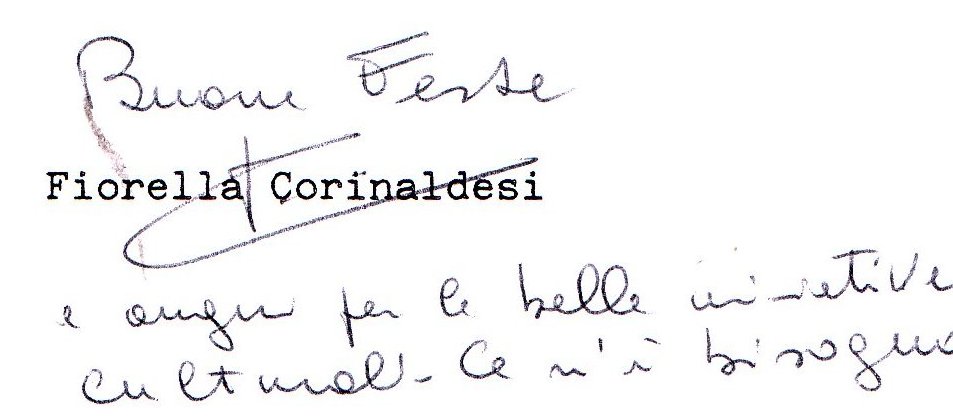 Buone Feste
Fiorella Corinaldesi
e auguri per le belle iniziative
culturali - Ce n'è bisogno